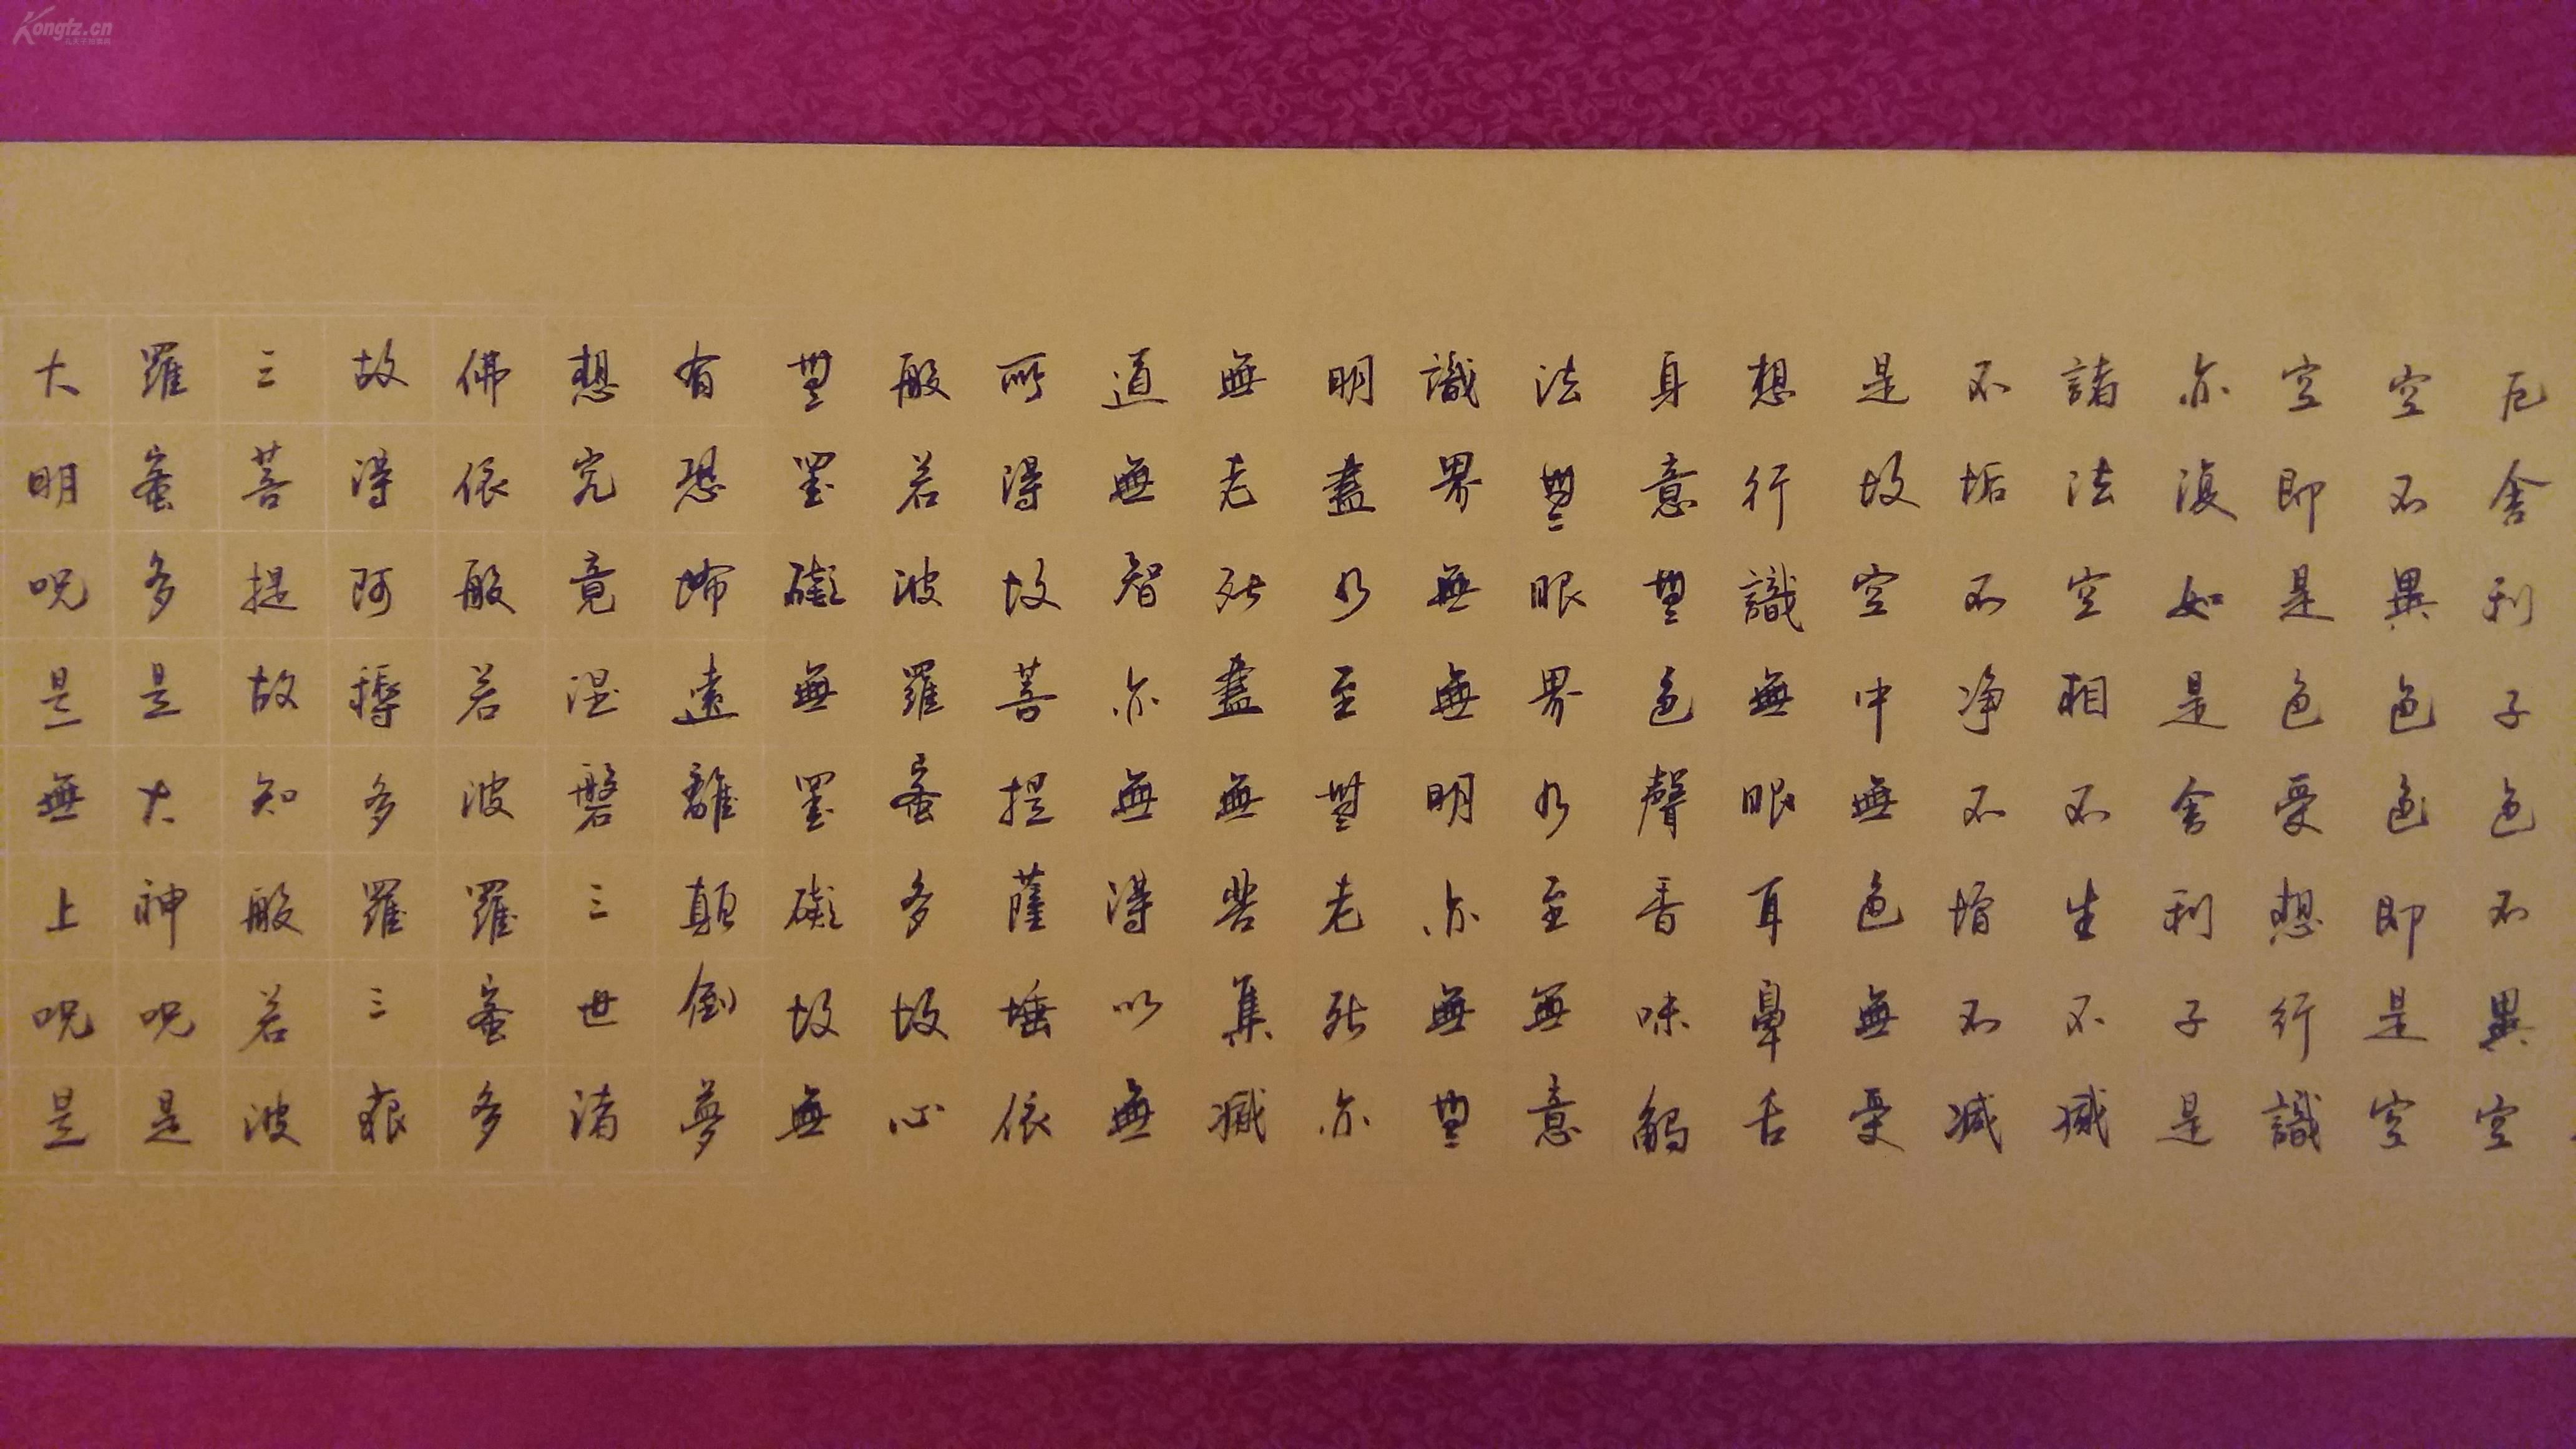 Kongfz.cn
厄舍利子色不異空
空不異色色即是空
空即是色受想行識
亦復如是舍利子是
諸法空相不生不滅
不垢不净不增不减
是故空中無色無受
想行識無眼耳鼻舌
身意無色聲香味觸
法無眼界乃至無意
識界無無明亦無無
明盡乃至無老死亦
無老死盡無苦集滅
道無智亦無得以無
所得故菩提薩埵依
般若波羅蜜多故心
無罣礙無罣礙故無
有恐怖遠離顛倒夢
想究竟涅磐三世諸
佛依般若波羅蜜多
故得阿耨多羅三藐
三菩提故知般若波
羅蜜多是大神呪是
大明呪是無上呪是